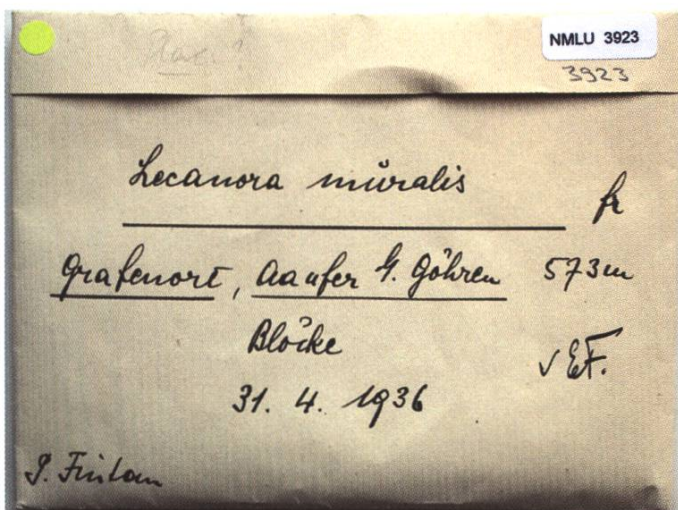 NMLU 3923
3923
Lecanora muralis
fr
Grafenort, Aaufer h. Göhren 573m
Blöcke
√ EF.
31. 4. 1936
P. Fintan